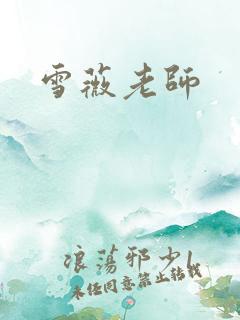 雪薇老師
浪蕩邪少1
未任同意禁止轉載